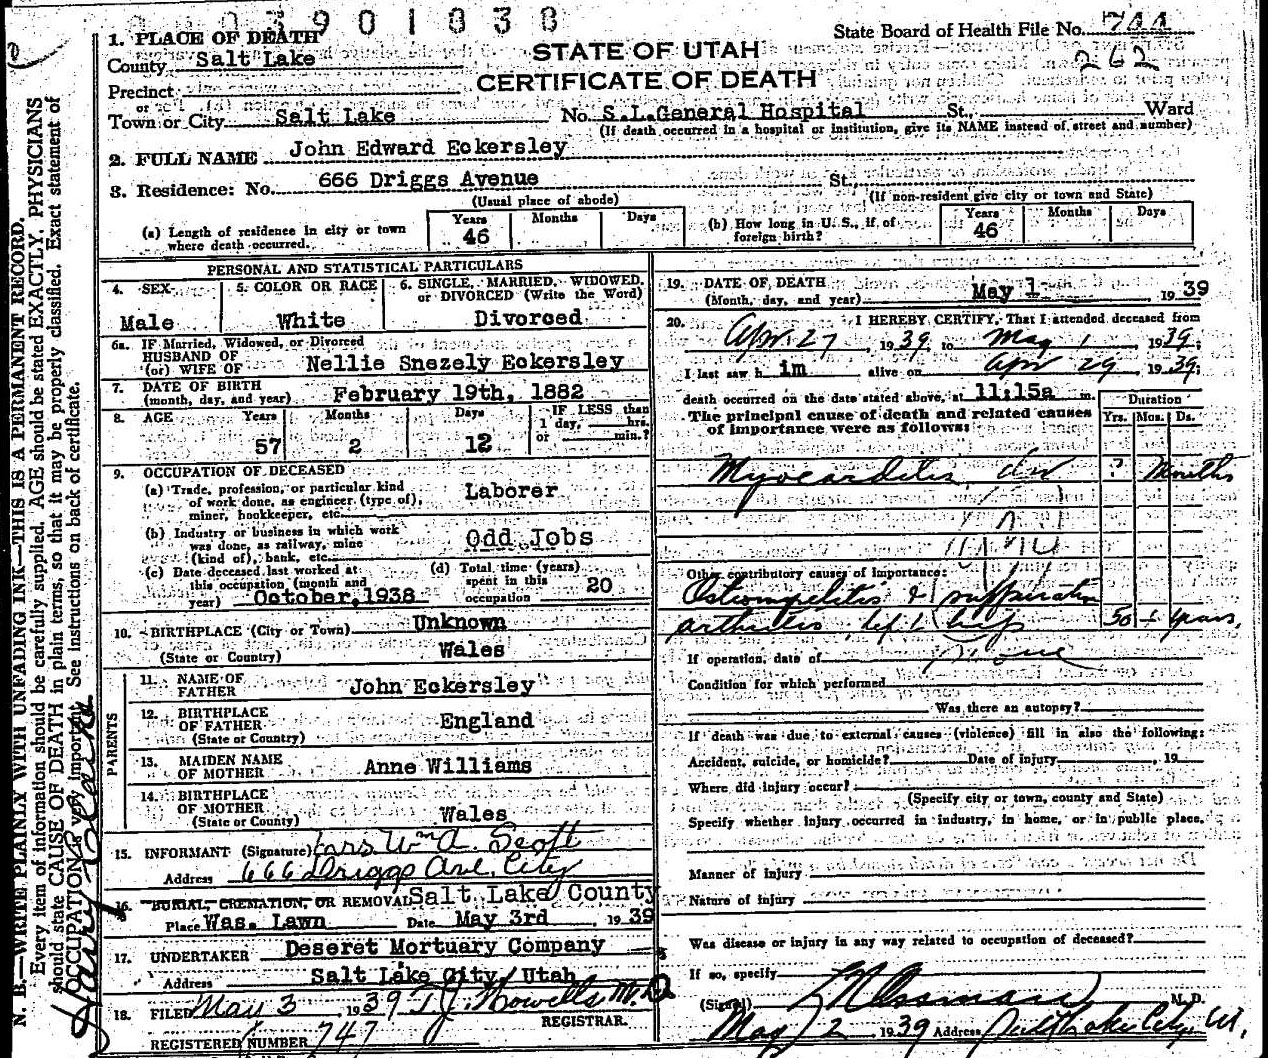 03901838
State Board of Health File No. 744
262
STATE OF UTAH
CERTIFICATE OF DEATH
1. PLACE OF DEATH
County Salt Lake
Precinct
or
Town or City Salt Lake No. S.L.General Hospital St., Ward
(If death occurred in a hospital or institution, give its NAME instead of street and number)
2. FULL NAME John Edward Eckersley
3. Residence: No. 666 Driggs Avenue St.
(Usual place of abode) (If non-resident give city or town and State)
(a) Length of residence in city or town where death occurred. Years 46 Months Days
(b) How long in U. S., if of foreign birth? Years 46 Months Days
PERSONAL AND STATISTICAL PARTICULARS
4. SEX Male
5. COLOR OR RACE White
6. SINGLE, MARRIED, WIDOWED, or DIVORCED (Write the Word) Divorced
6a. IF Married, Widowed, or Divorced
HUSBAND OF
(or) WIFE OF Nellie Snezely Eckersley
7. DATE OF BIRTH
(month, day, and year) February 19th, 1882
8. AGE Years 57 Months 2 Days 12 IF LESS than 1 day, hrs. or min.?
9. OCCUPATION OF DECEASED
(a) Trade, profession, or particular kind
of work done, as engineer (type of),
miner, bookkeeper, etc. Laborer
(b) Industry or business in which work
was done, as railway, mine
(kind of), bank, etc. Odd Jobs
(c) Date deceased last worked at
this occupation (month and
year) October, 1938
(d) Total time (years)
spent in this
occupation 20
10. BIRTHPLACE (City or Town) Unknown
(State or Country) Wales
PARENTS
11. NAME OF
FATHER John Eckersley
12. BIRTHPLACE
OF FATHER England
(State or Country)
13. MAIDEN NAME
OF MOTHER Anne Williams
14. BIRTHPLACE
OF MOTHER
(State or Country) Wales
15. INFORMANT (Signature) Mrs. Wm A. Scott
Address 666 Driggs Ave. City
16. BURIAL, CREMATION, OR REMOVAL Salt Lake County
Place Was. Lawn Date May 3rd 1939
17. UNDERTAKER Deseret Mortuary Company
Address Salt Lake City, Utah
18. FILED May 3 1939 T.J. Howells M.D.
REGISTRAR.
REGISTERED NUMBER 747
19. DATE OF DEATH
(Month, day, and year) May 1 1939
20. I HEREBY CERTIFY, That I attended deceased from
Apr. 27 1939, to May 1 1939;
I last saw h im alive on Apr 29 1939;
death occurred on the date stated above, at 11:15a m.
The principal cause of death and related causes
of importance were as follows:
Duration
Yrs. Mos. Ds.
Myocarditis, ? Months
Other contributory causes of importance:
Osteomyelitis & suppurative
arthritis, left hip 50 ± years.
If operation, date of None
Condition for which performed
Was there an autopsy?
If death was due to external causes (violence) fill in also the following:
Accident, suicide, or homicide? Date of injury , 19
Where did injury occur?
(Specify city or town, county and State)
Specify whether injury occurred in industry, in home, or in public place.
Manner of injury
Nature of injury
Was disease or injury in any way related to occupation of deceased?
If so, specify
(Signed) Ossman M. D.
May 2 1939 Address Salt Lake City Ut.
N. B.—WRITE PLAINLY WITH UNFADING INK—THIS IS A PERMANENT RECORD.
Every item of information should be carefully supplied. AGE should be stated EXACTLY. PHYSICIANS
should state CAUSE OF DEATH in plain terms, so that it may be properly classified. Exact statement of
OCCUPATION is very important. See instructions on back of certificate.